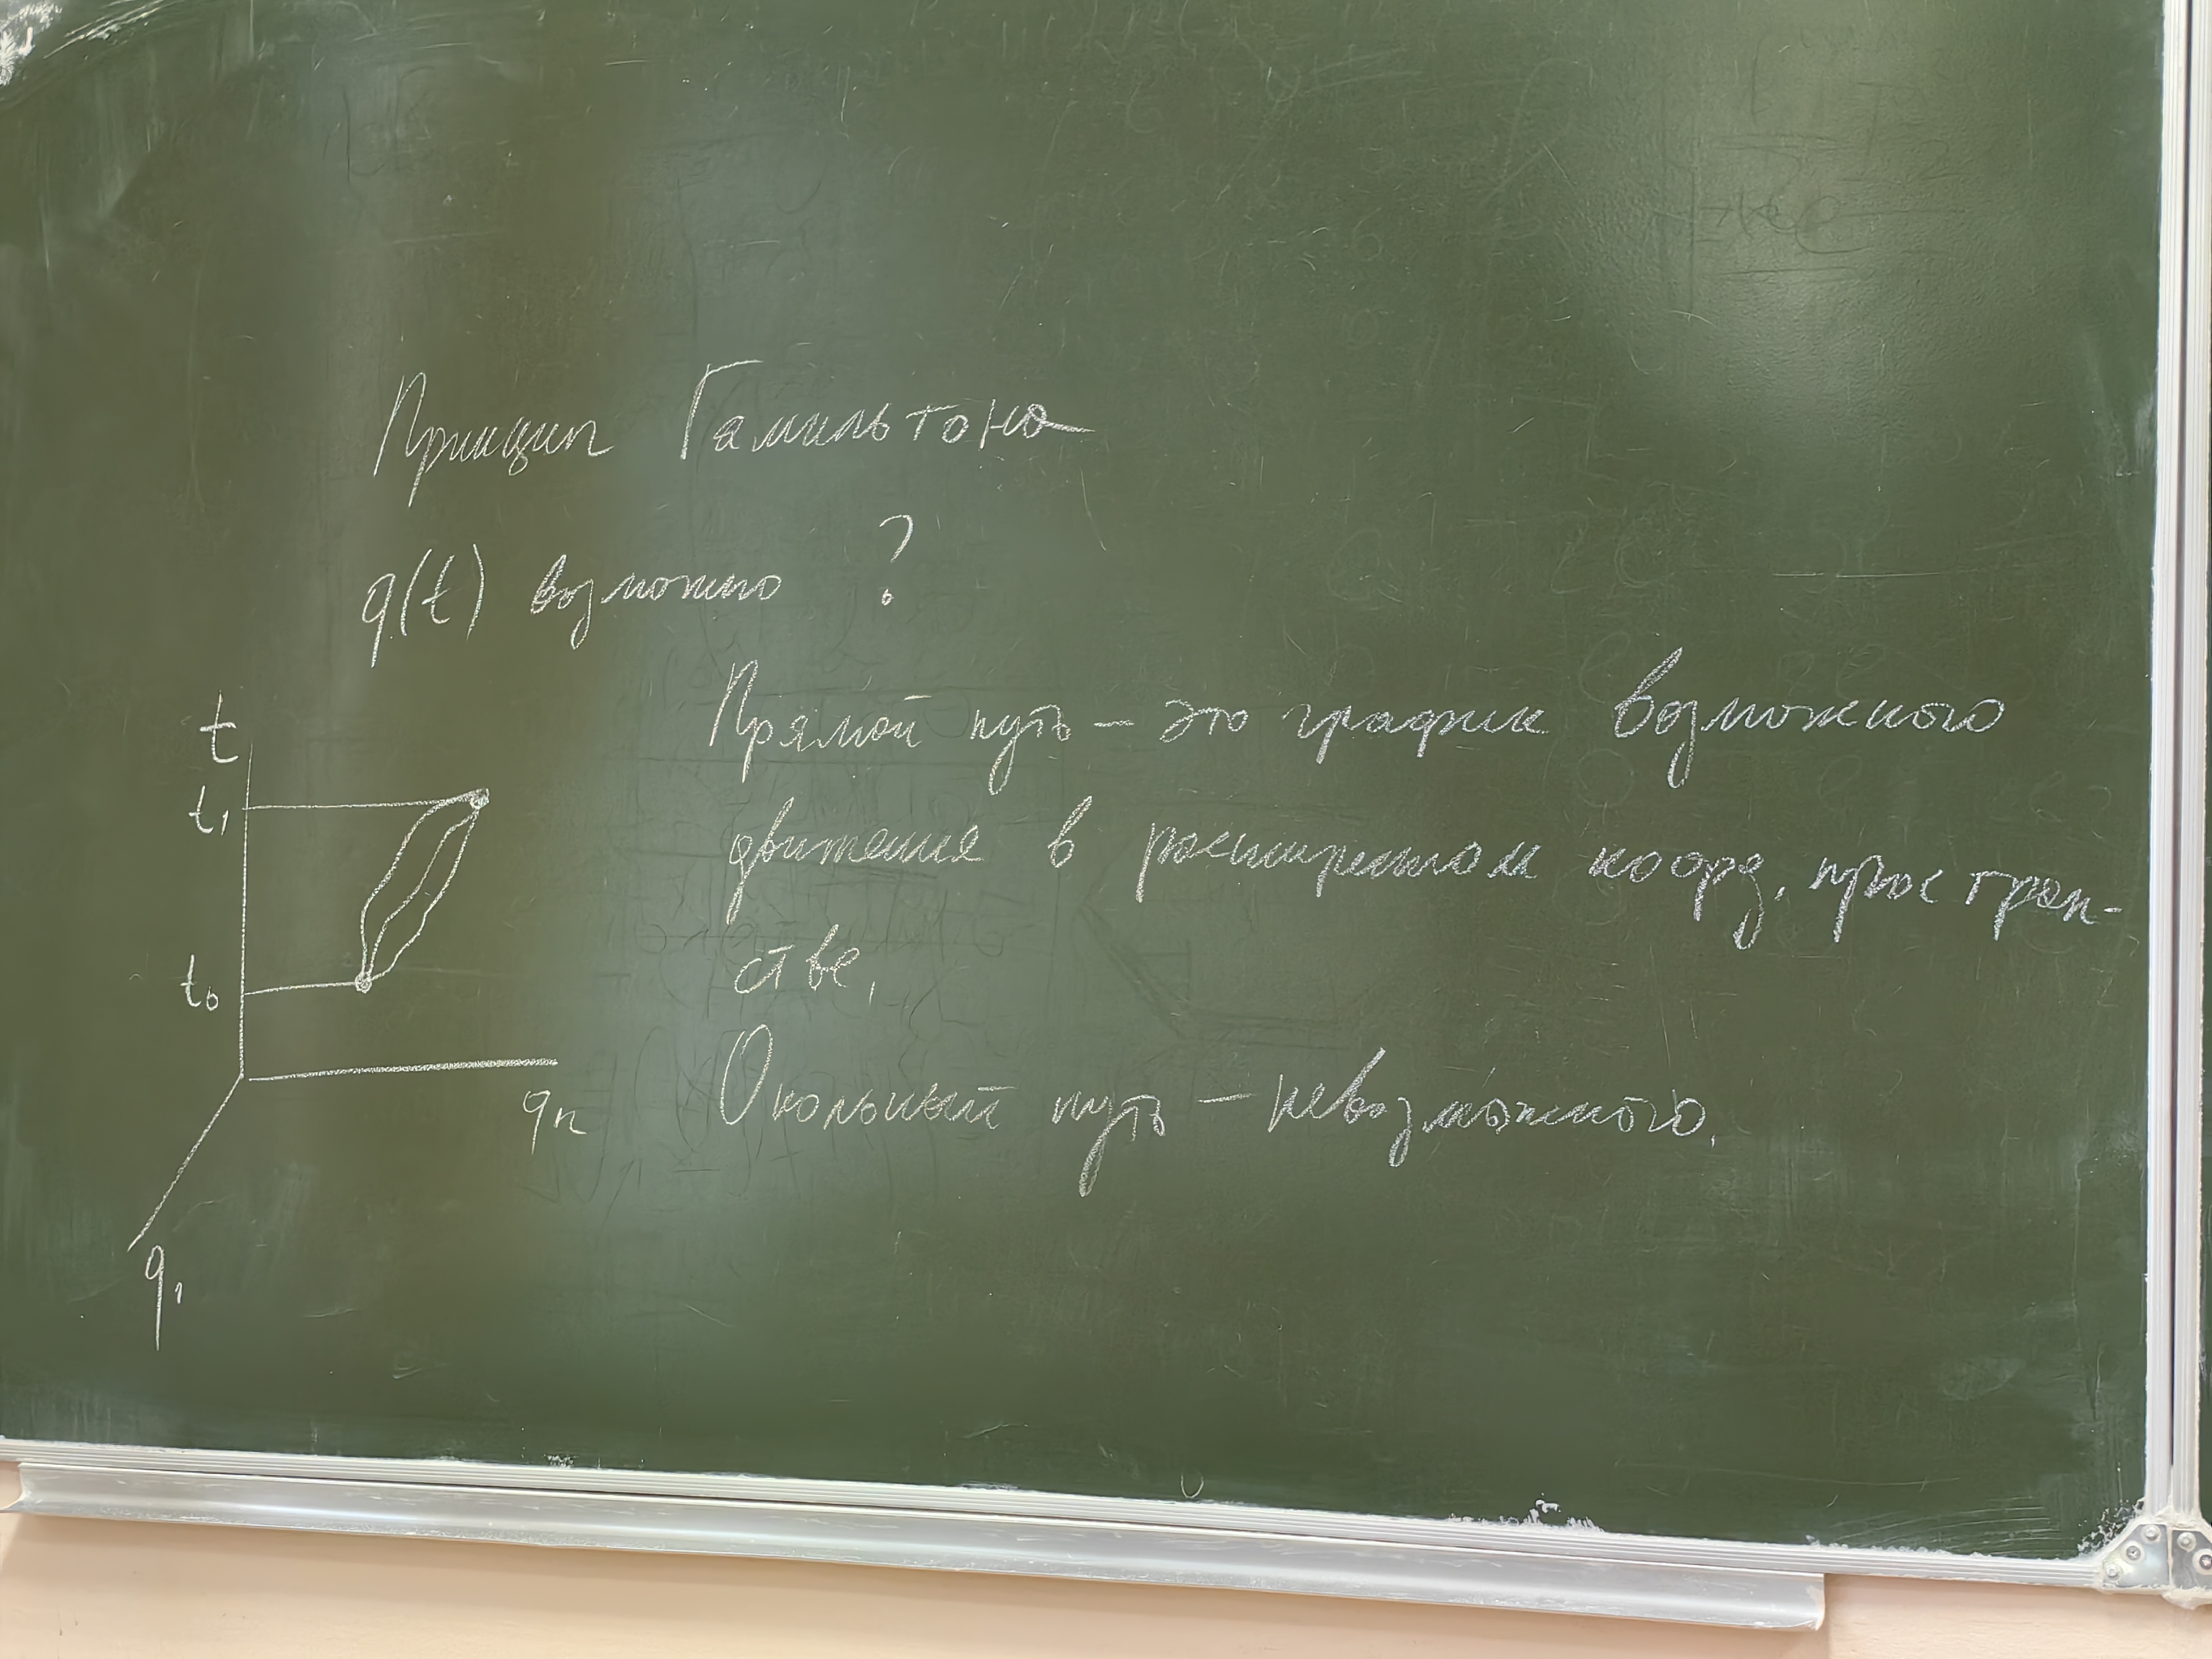 Принцип Гамильтона
q(t) возможно ?
Прямой путь – это график возможного
движения в расширенном коорд. простран-
стве.
Окольный путь – невозможного.
t
t₁
t₀
qₙ
q₁